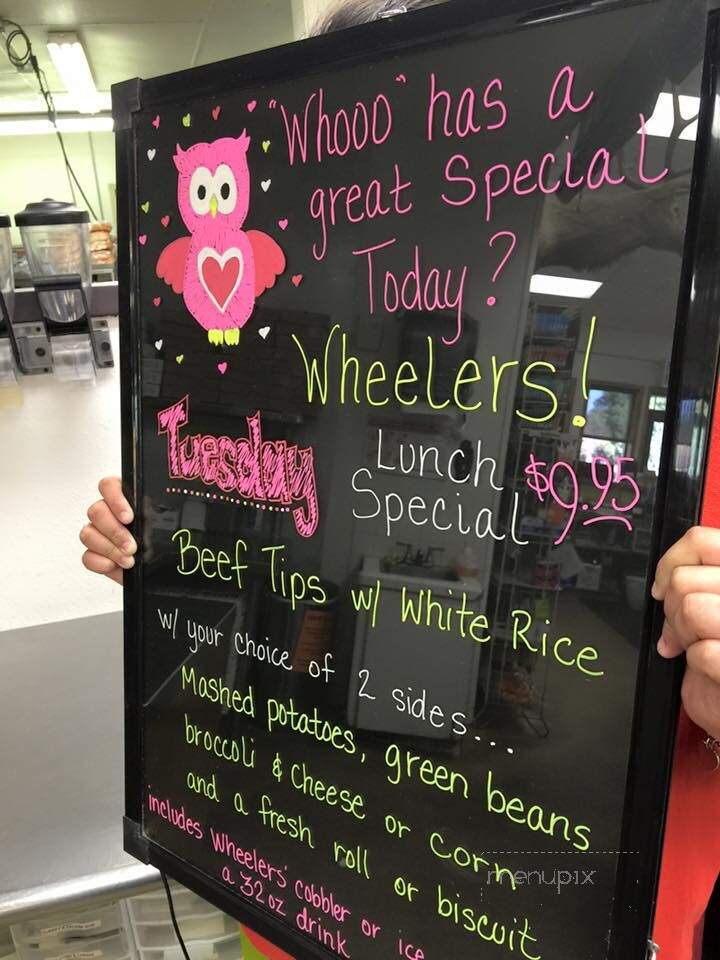 "Whooo" has a
great Special
Today?
Wheelers!
Tuesday
Lunch
Special
$9.95
Beef Tips w/ White Rice
w/ your choice of 2 sides...
Mashed potatoes, green beans
broccoli & cheese or corn
and a fresh roll or biscuit
includes Wheelers' cobbler or ice
a 32 oz drink
menupix